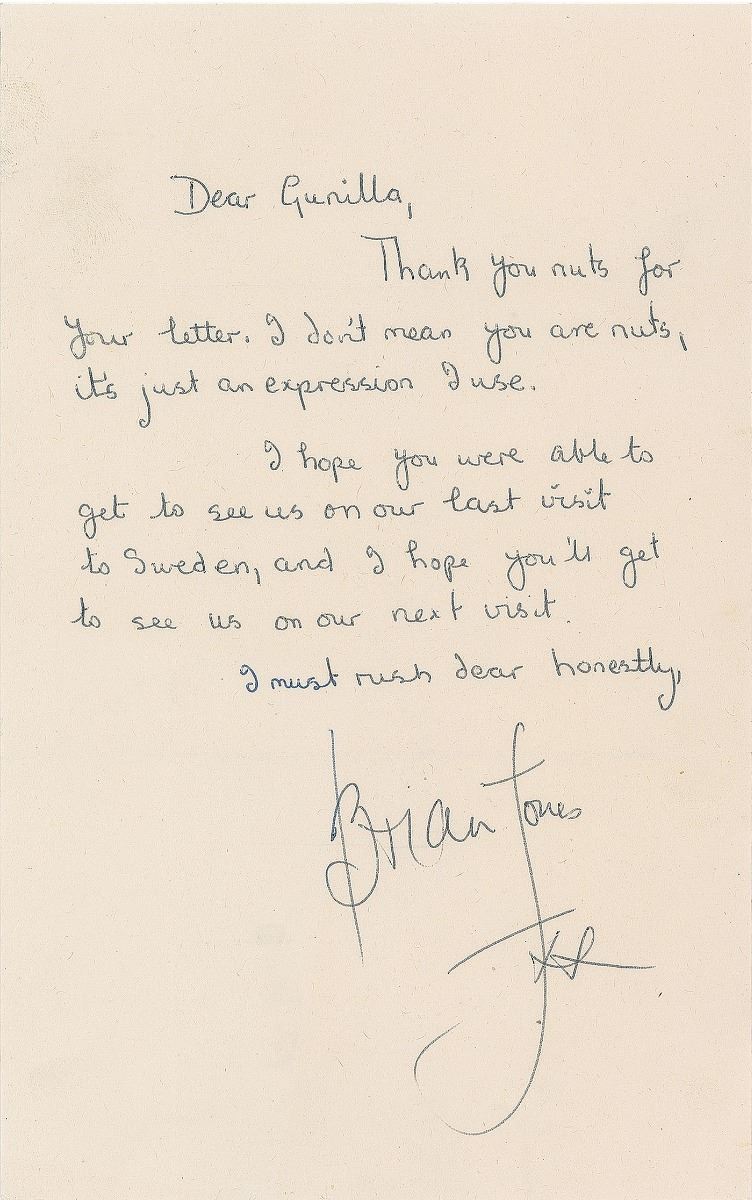 Dear Gunilla,
Thank you nuts for
your letter. I don't mean you are nuts,
it's just an expression I use.
I hope you were able to
get to see us on our last visit
to Sweden, and I hope you'll get
to see us on our next visit.
I must rush dear honestly,
Brian Jones
xx